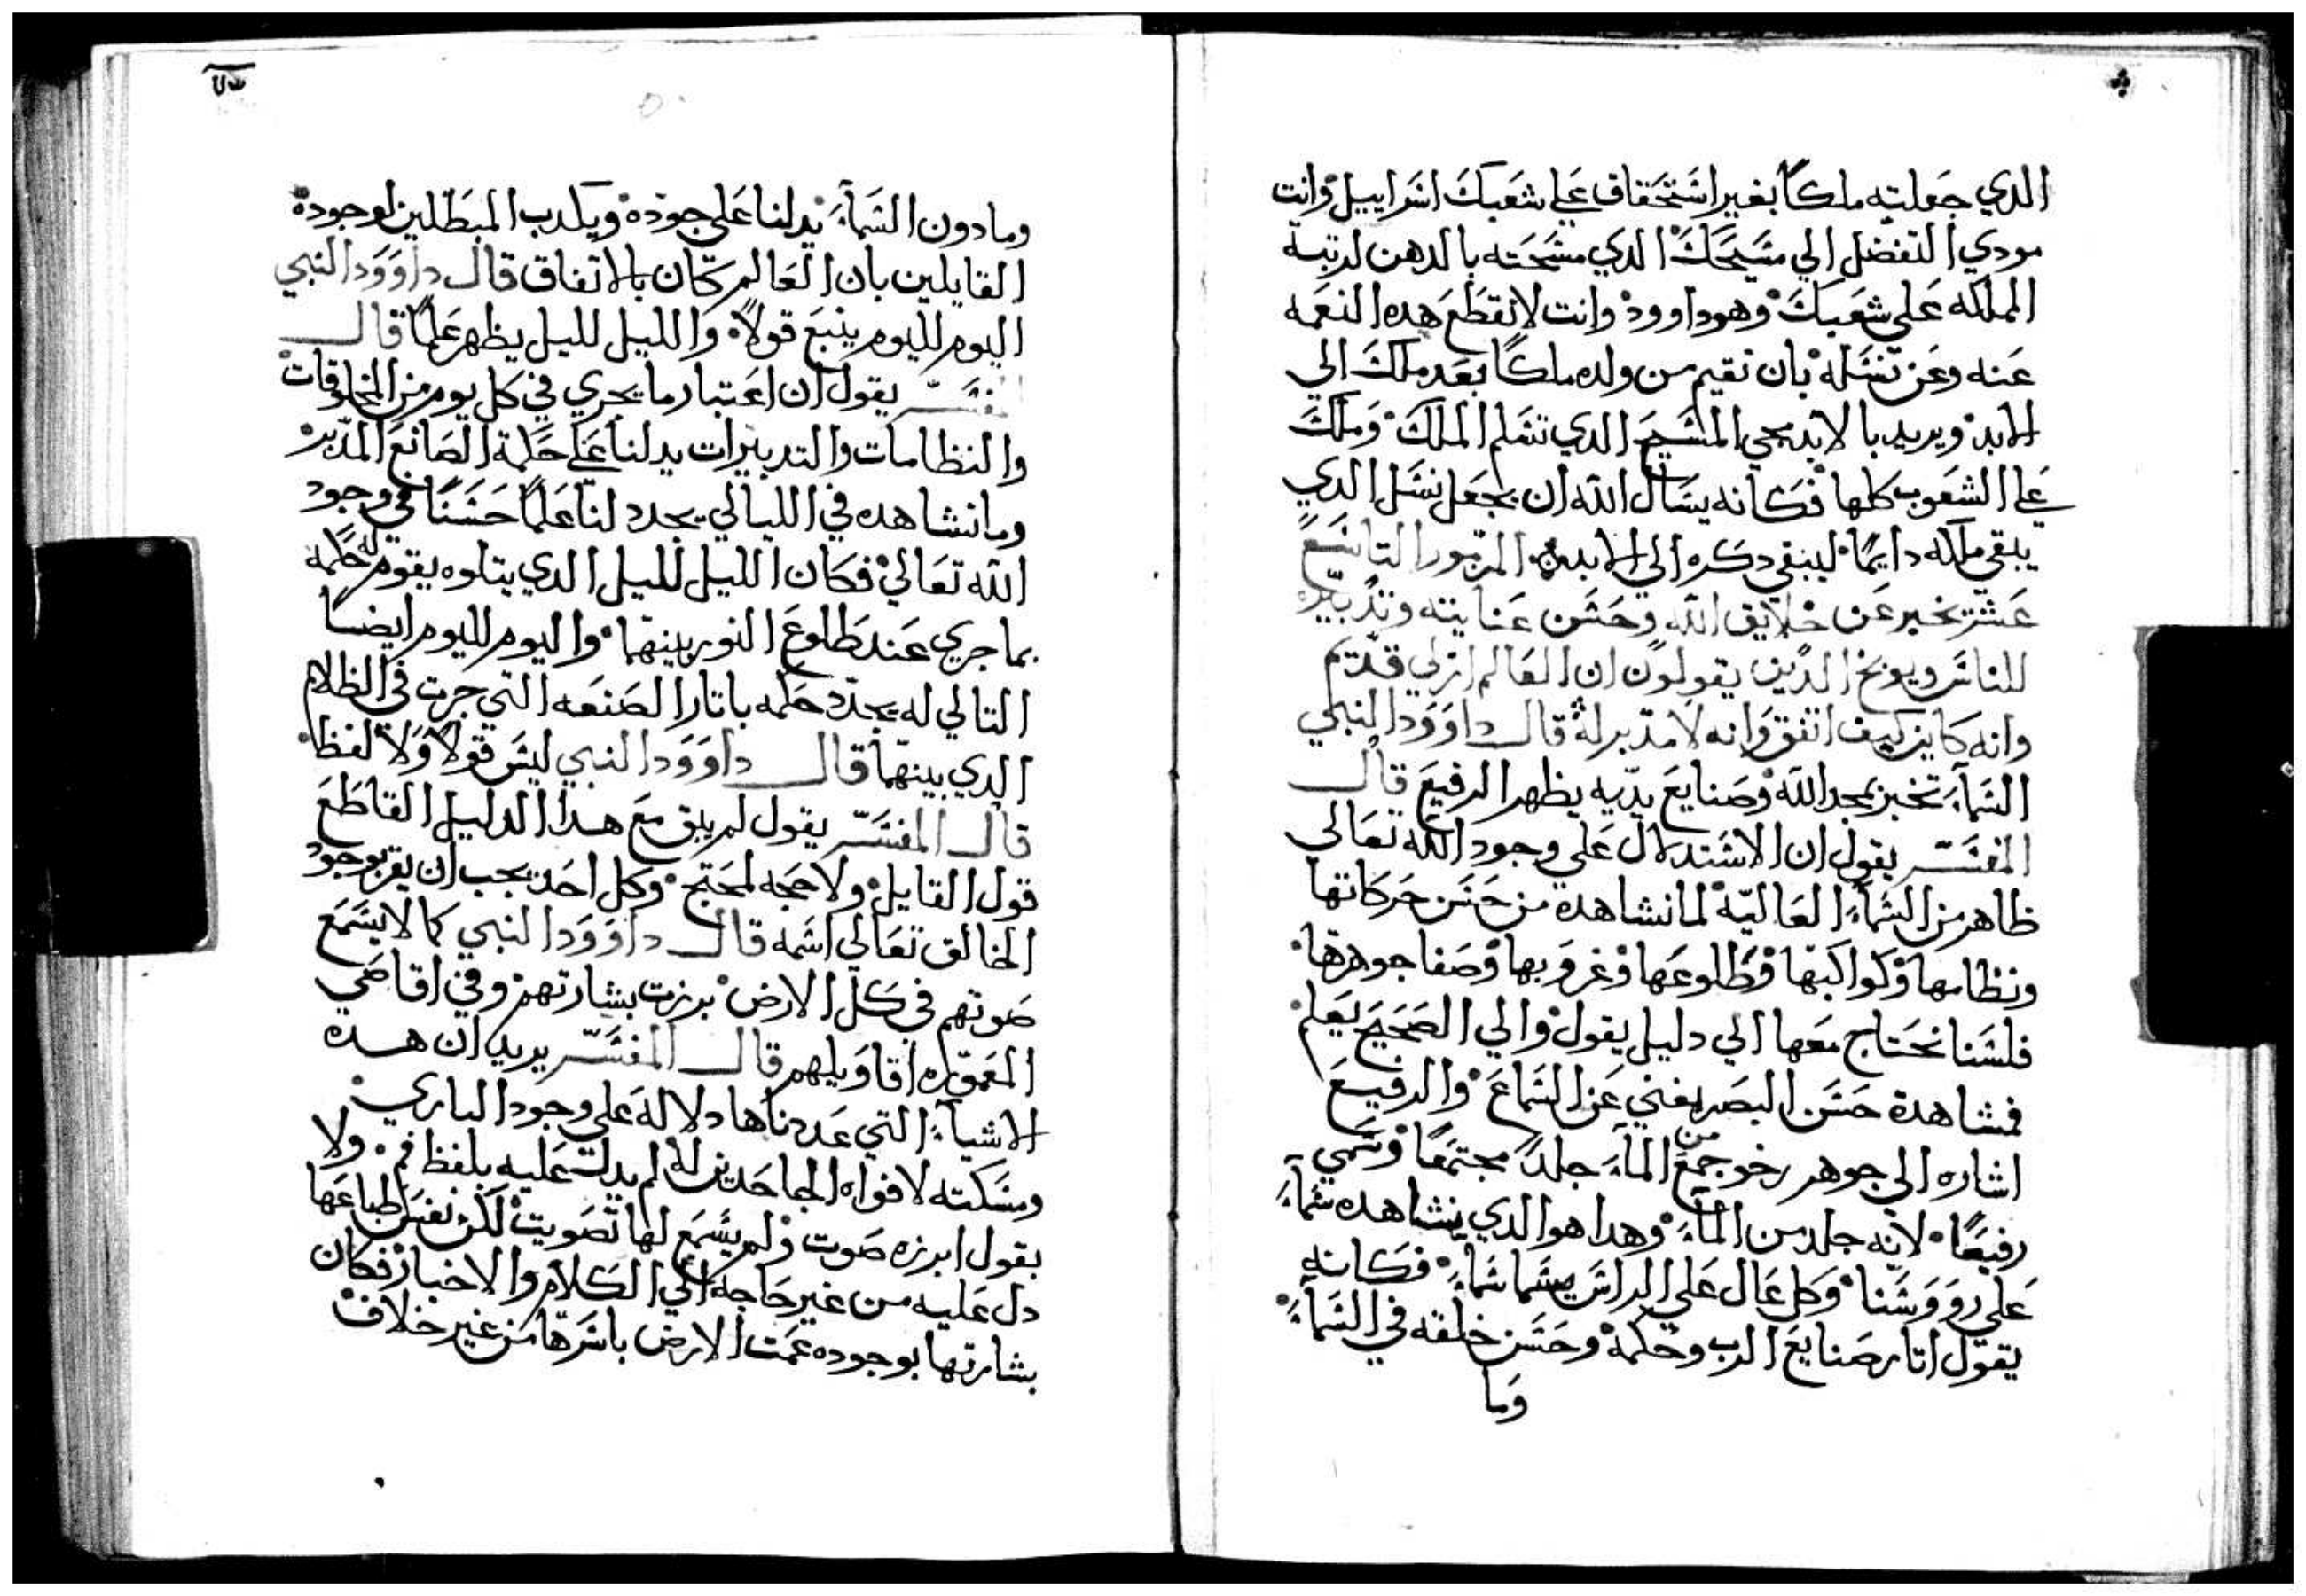 الدي جعلته ملكاً بغير استحقاق علي شعبك اسراييل وانت
مودي التفضل الي مسيحك الدي مسحته بالدهن لرتبة
المملكه على شعبك وهو داوود وانت لا تقطع هده النعمه
عنه وعن نسله بان تقيم من ولده ملكاً بعد ملك الي
الابد ويريد بالابد مجي المسيح الدي تسلم الملك وملك
علي الشعوب كلها فكانه يسال الله ان يجعل نسل الدي
يبقي ملكه دايماً ليبقي دكره الي الابد المزمور التاسع
عشر تخبر عن خلايق الله وحسن عنايته وتدبيره
للناس ويوبخ الدين يقولون ان العالم ازلي قديم
وانه كاين كيف اتفق وانه لا مدبر له قال داوود النبي
السماء تخبر بمجد الله وصنايع يديه يظهر الرفيع قال
المفسر يقول ان الاستدلال على وجود الله تعالى
ظاهر من السماء العاليّة لما نشاهده من حسن حركاتها
ونظامها وكواكبها وطلوعها وغروبها وصفا جوهرها
فلسنا نحتاج معها الي دليل يقول والي الصحيح يعلم
فشاهدة حسن البصر يغني عن السماع والرفيع
اشاره الي جوهر رخو جمع من الماء جلدً مجتمعاً وسمي
رفيعاً لانه جلد من الماء وهدا هو الدي نشاهده سماء
على رووسنا وكل عال علي الراس يسما سماء فكانه
يقول اتار صنايع الرب وحكمة وحسن خلقه في السماء
وما
وما دون السماء يدلنا على جوده ويكدب المبطلين لوجوده
القايلين بان العالم كان بالاتفاق قال داوود النبي
اليوم لليوم ينبع قولاً والليل لليل يظهر علماً قال
المفسر يقول ان اعتبار ما يجري في كل يوم من المخلوقات
والنظامات والتدبيرات يدلنا علي حكمة الصانع المدبر
وما نشاهده في الليالي يجدد لنا علماً حسناً في وجود
الله تعالي فكان الليل لليل الدي يتلوه يقوم له حكمه
بما جري عند طلوع النور بينهما واليوم لليوم ايضاً
التالي له يجدد حكمه باتار الصنعه التي جرت في الظلام
الدي بينهما قال داوود النبي ليس قولا ولا لفظا
قال المفسر يقول لم يبق مع هدا الدليل القاطع
قول القايل ولا حجه لمحتج وكل احد يجب ان يقر بوجود
الخالق تعالي اسمه قال داوود النبي كما لا يسمع
صوتهم في كل الارض برزت بشارتهم وفي اقاصي
المعموره اقاويلهم قال المفسر يريد ان هده
الاشياء التي عددناها دلالة على وجود الباري
ومسكته لافواه الجاحدين له لم يدلت عليه بلفظ فم ولا
بقول ابرزه صوت ولم يسمع لها تصويت لكن نفس طباعها
دل عليه من غير حاجه الي الكلام والاخبار فكان
بشارتها بوجوده عمت الارض باسرها من غير خلاف